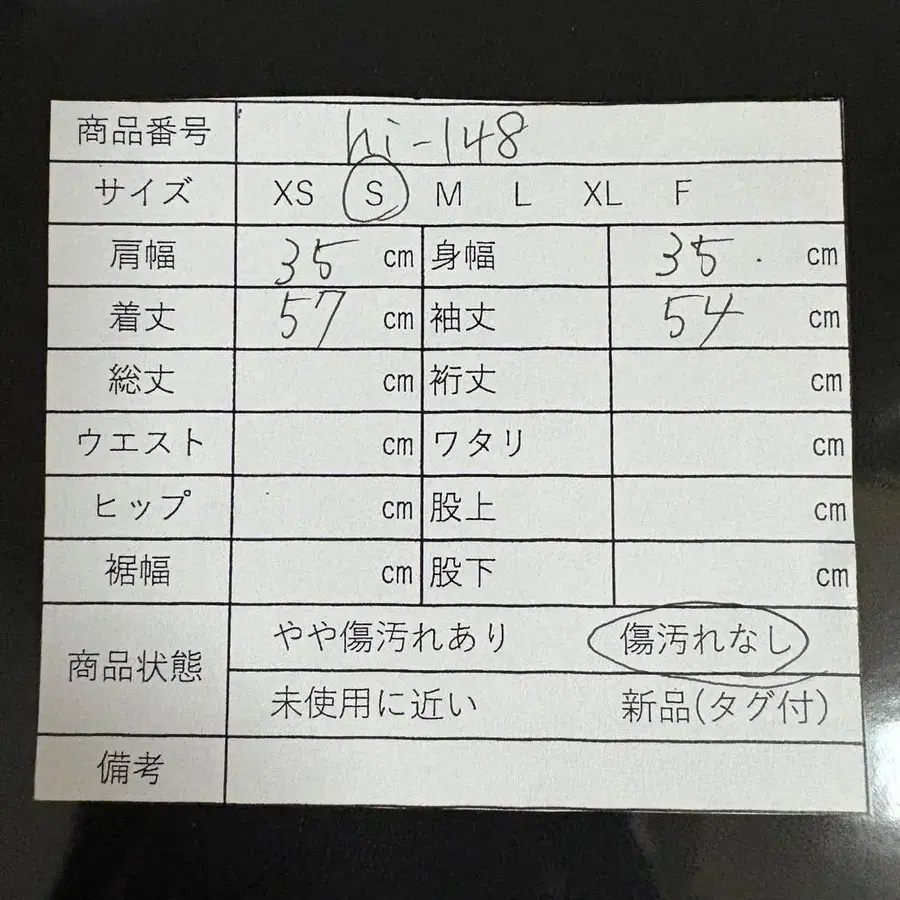 商品番号 hi-148
サイズ XS S M L XL F
肩幅 35 cm 身幅 35 cm
着丈 57 cm 袖丈 54 cm
総丈 cm 裄丈 cm
ウエスト cm ワタリ cm
ヒップ cm 股上 cm
裾幅 cm 股下 cm
商品状態 やや傷汚れあり 傷汚れなし
未使用に近い 新品(タグ付)
備考